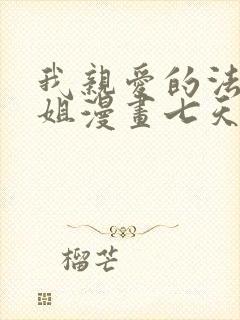 我親愛的法
姐漫畫七天
榴芒